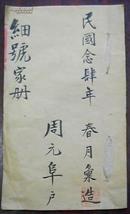 民國念肆年　春月彙造
周元阜戶
細號家册